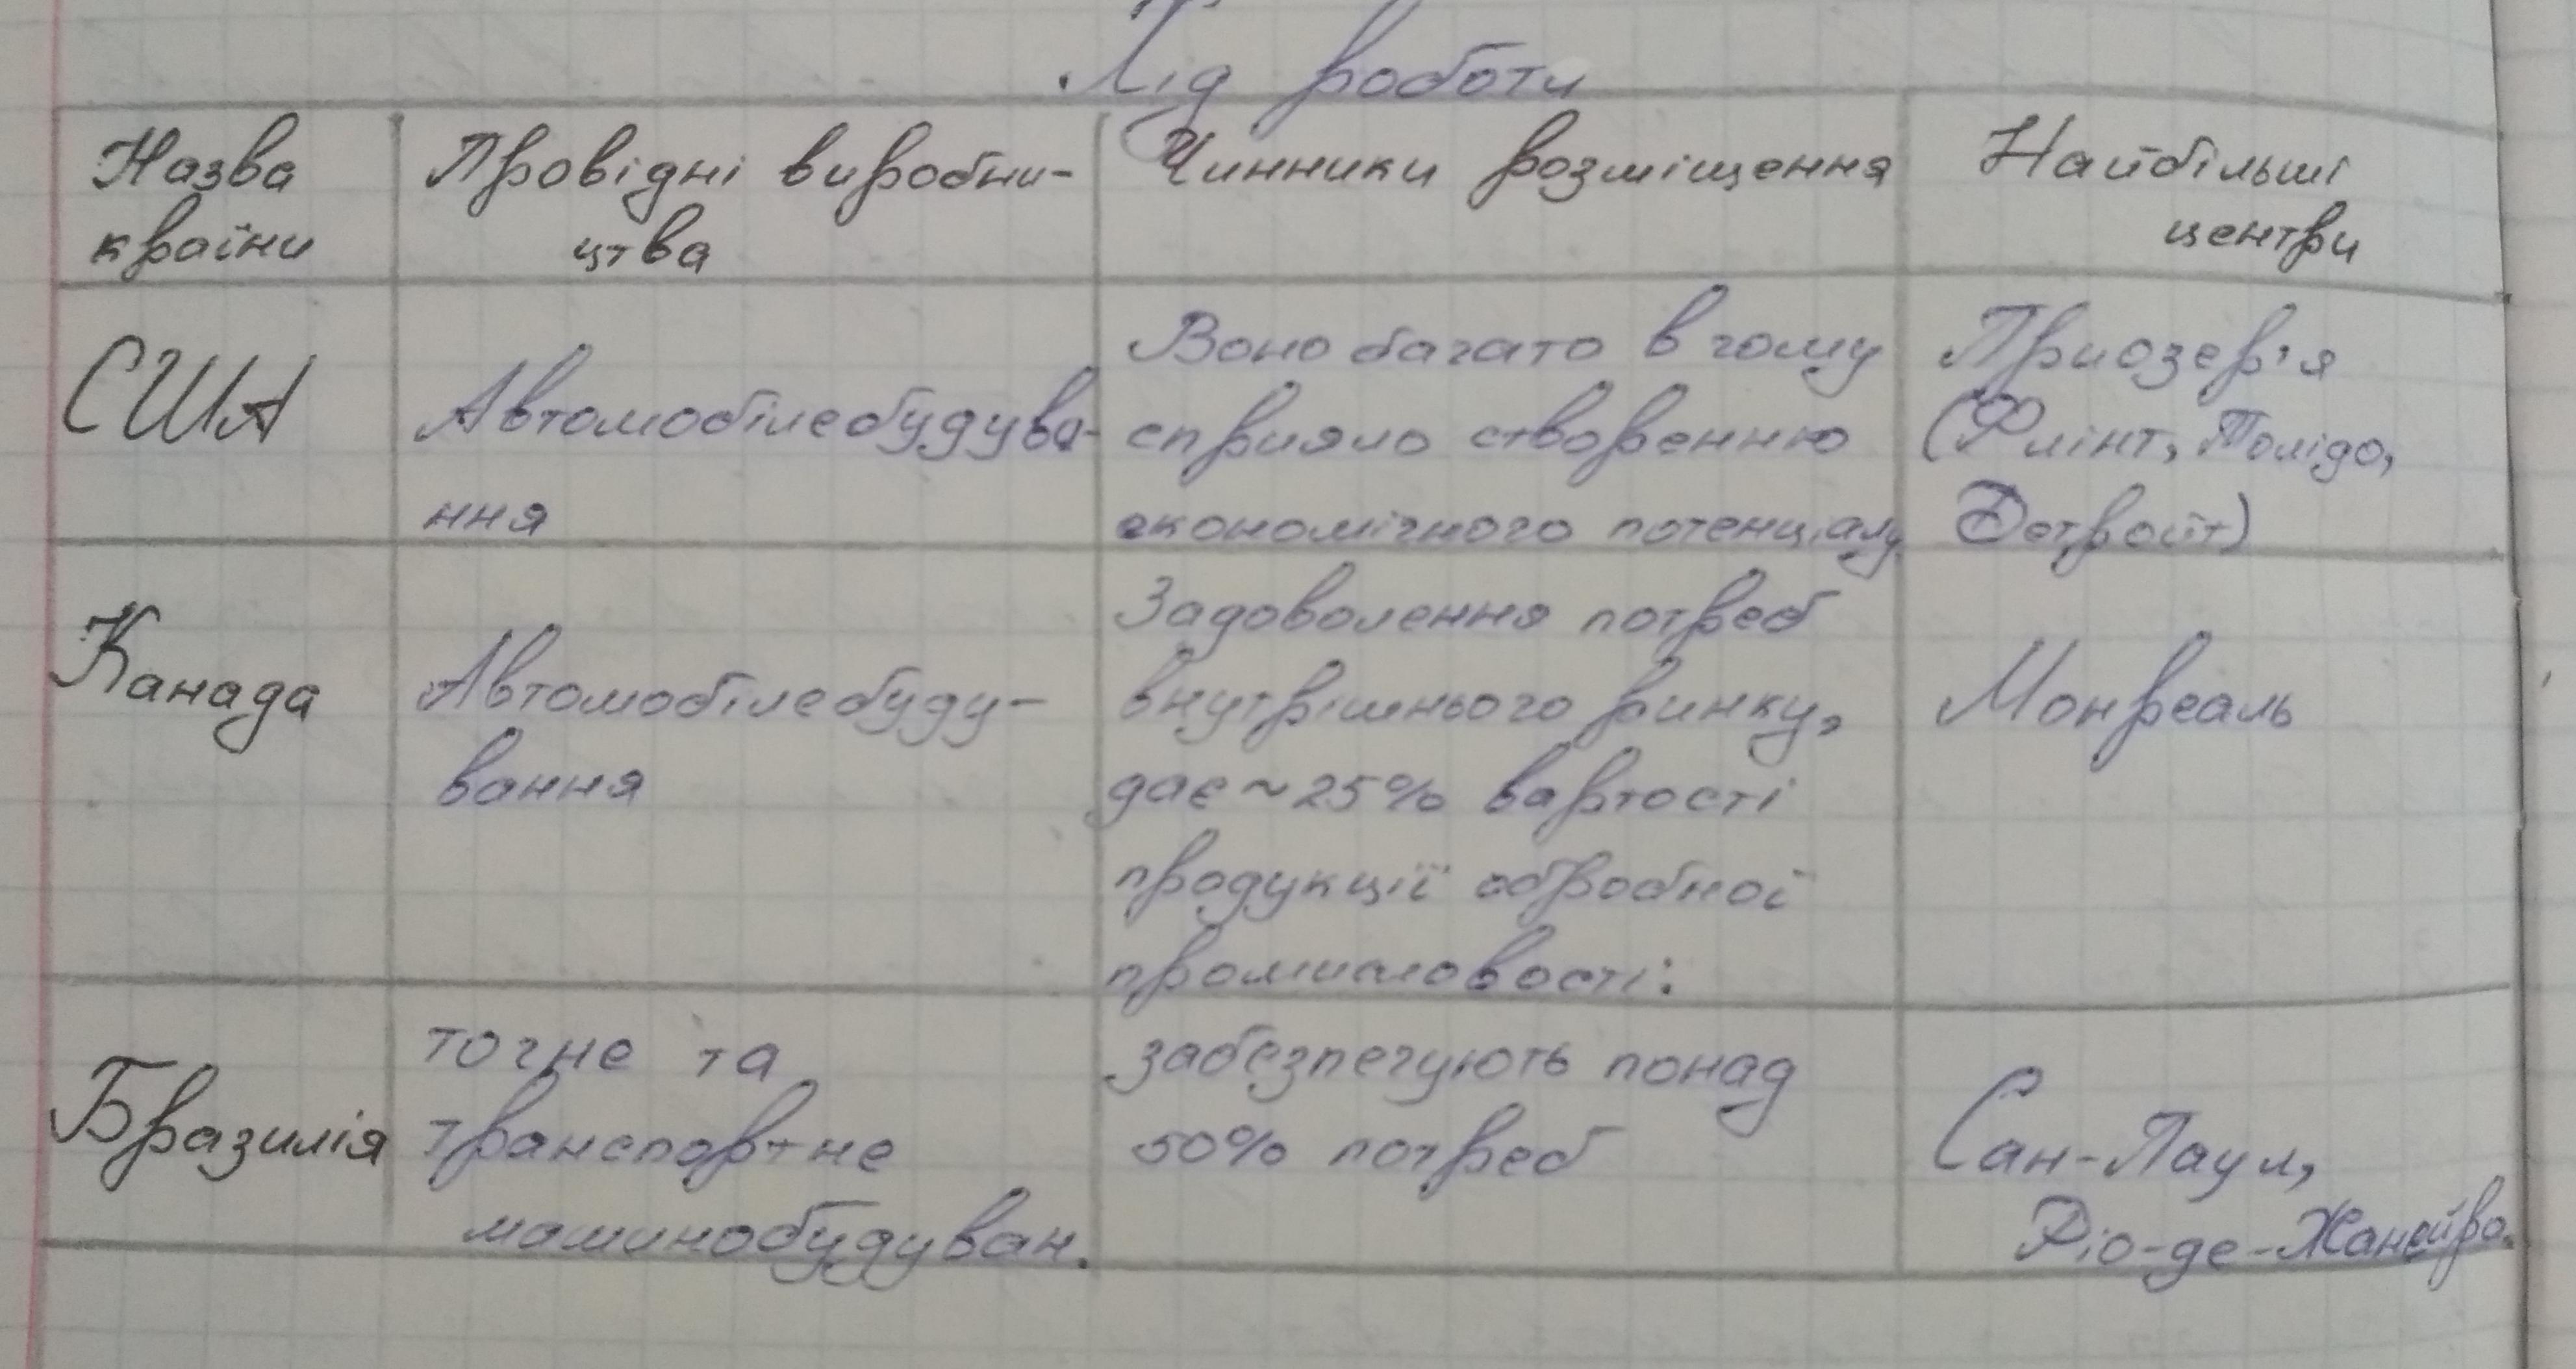 Хід роботи
Назва країни
Провідні виробни-
цтва
Чинники розміщення
Найбільші
центри
США
Автомобілебудува-
ння
Воно багато в чому
сприяло створенню
економічного потенціалу
Приозер'я
(Флінт, Толідо,
Детройт)
Канада
Автомобілебуду-
вання
Задоволення потреб
внутрішнього ринку,
дає ~25% вартості
продукції обробної
промисловості:
Монреаль
Бразилія
точне та
транспортне
машинобудуван.
забезпечують понад
50% потреб
Сан-Паул,
Ріо-де-Жанейро.